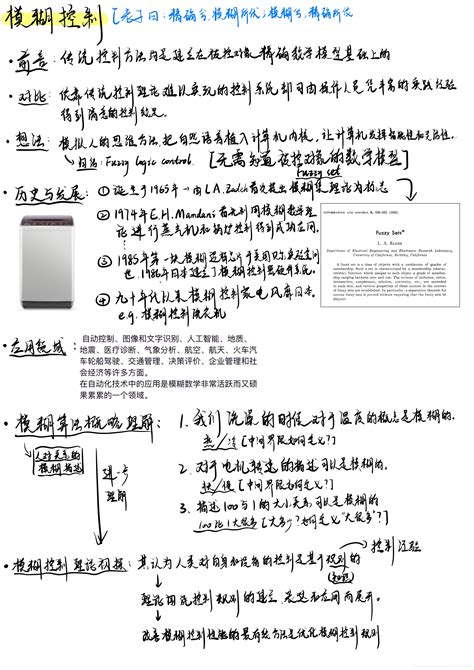 模糊控制 [老子曰：精确兮，模糊所伏；模糊兮，精确所伏
• 前言：传统控制方法均是建立在被控对象精确数学模型基础上的
• 对比：依靠传统控制理论难以实现的控制系统却可由操作人员凭丰富的实践经验
得到满意的控制效果。
• 想法：模拟人的思维方法，把自然语言植入计算机内核，让计算机发挥智能性和灵活性。
Fuzzy logic control [无需知道被控对象的数学模型]
fuzzy set
• 历史与发展：① 诞生于1965年 - 由L.A.Zadeh首次提出模糊集理论为标志
② 1974年E.H.Mandani首先利用模糊数学理
论进行蒸汽机和锅炉控制得到成功应用。
③ 1985年第一块模糊逻辑芯片于美国实验室问
世，1986年日本建立了模糊控制器硬件系统。
④ 九十年代以来模糊控制家电风靡日本。
e.g. 模糊控制洗衣机
INFORMATION AND CONTROL 8, 338-353 (1965)
Fuzzy Sets*
L. A. ZADEH
Department of Electrical Engineering and Electronics Research Laboratory,
University of California, Berkeley, California
A fuzzy set is a class of objects with a continuum of grades of
membership. Such a set is characterized by a membership (characteristic)
function which assigns to each object a grade of membership
ranging between zero and one. The notions of inclusion, union,
intersection, complement, relation, convexity, etc., are extended
to such sets, and various properties of these notions in the context
of fuzzy sets are established. In particular, a separation theorem for
convex fuzzy sets is proved without requiring that the fuzzy sets be
disjoint.
• 应用领域：
自动控制、图像和文字识别、人工智能、地质、
地震、医疗诊断、气象分析、航空、航天、火车汽
车轮船驾驶、交通管理、决策评价、企业管理和社
会经济等许多方面。
在自动化技术中的应用是模糊数学非常活跃而又硕
果累累的一个领域。
• 模糊算法概略理解：
人对关系的
模糊描述
进一步
理解
1. 我们洗澡的时候对于温度的概念是模糊的。
热/冷 [中间界限如何定义？]
2. 对于电机转速的描述可以是模糊的。
快/慢 [中间界限如何定义？]
3. 描述100与1的大小关系可以是模糊的
100比1大很多 [大多少？如何定义“大很多”？]
• 模糊控制理论初探：其认为人类对自身和设备的控制是基于规则的
控制经验
(知识)
理论围绕控制规则的建立、类型和应用而展开。
改善模糊控制性能的最有效方法是优化模糊控制规则